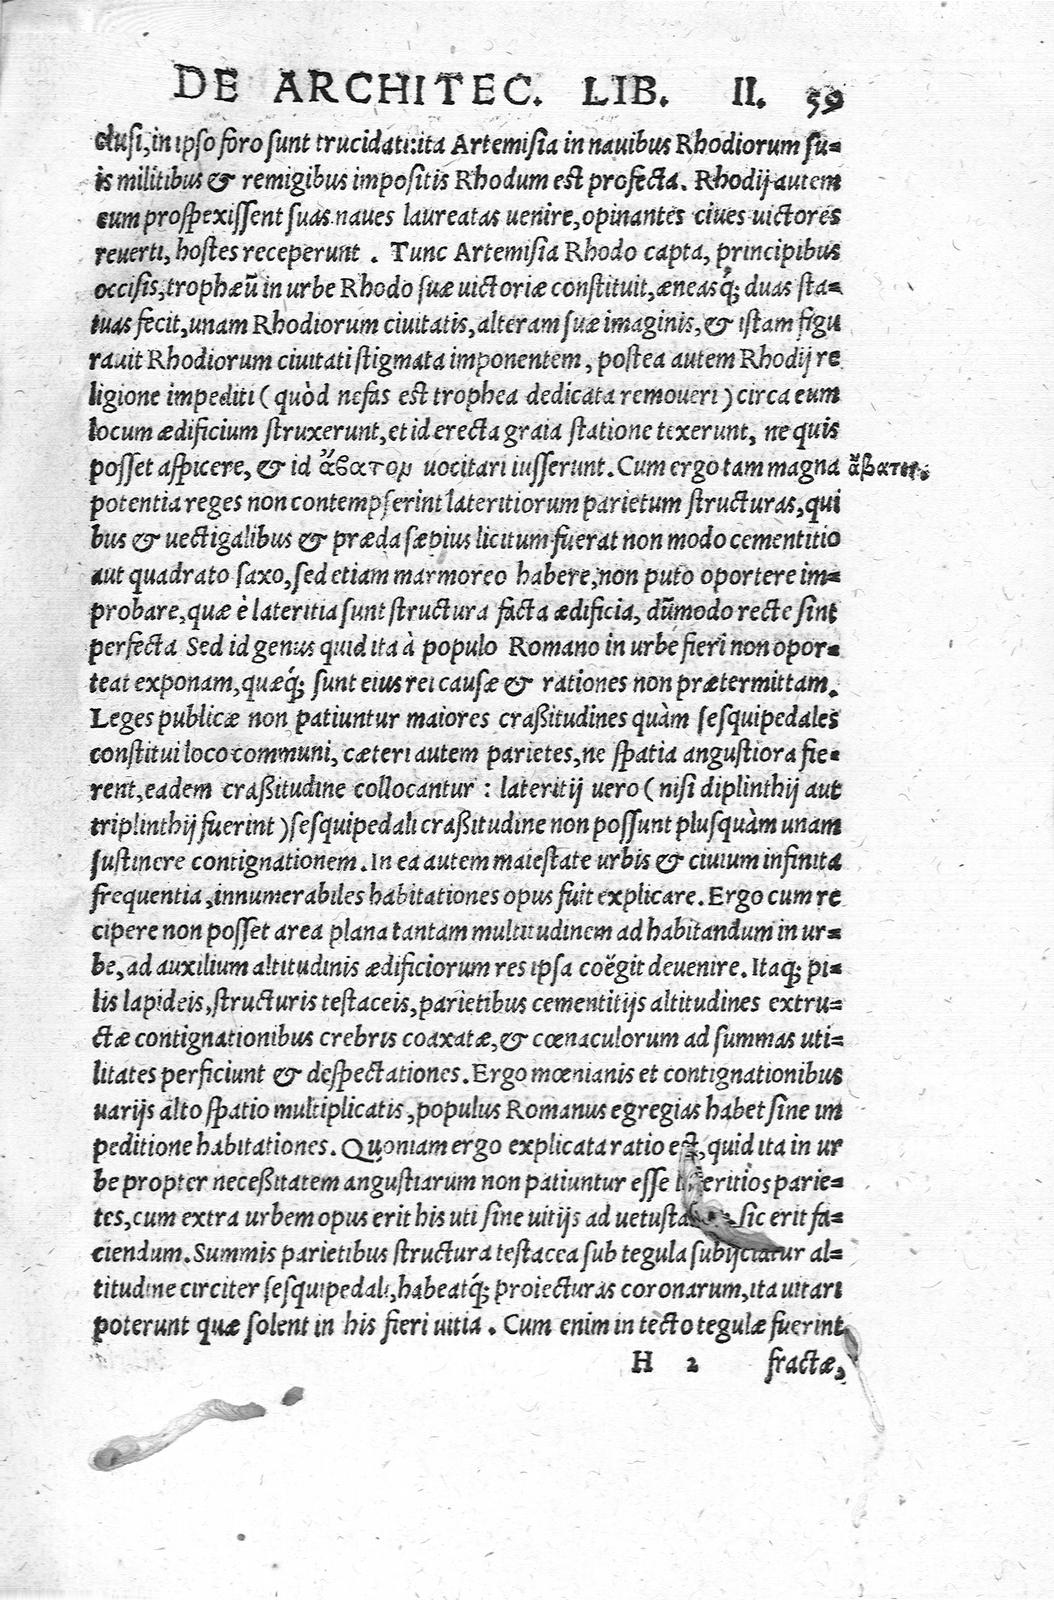 DE ARCHITEC. LIB. II. 59
clusi, in ipso foro sunt trucidati: ita Artemisia in nauibus Rhodiorum su=
is militibus & remigibus impositis Rhodum est profecta. Rhodij autem
cum prospexissent suas naues laureatas uenire, opinantes ciues uictores
reuerti, hostes receperunt. Tunc Artemisia Rhodo capta, principibus
occisis, trophæũ in urbe Rhodo suæ uictoriæ constituit, æneasq́; duas sta=
tuas fecit, unam Rhodiorum ciuitatis, alteram suæ imaginis, & istam figu
rauit Rhodiorum ciuitati stigmata imponentem, postea autem Rhodij re
ligione impediti (quòd nefas est trophea dedicata remoueri) circa eum
locum ædificium struxerunt, et id erecta graia statione texerunt, ne quis
posset aspicere, & id ἄβατον uocitari iusserunt. Cum ergo tam magna ἄβατον.
potentia reges non contempserint lateritiorum parietum structuras, qui
bus & uectigalibus & præda sæpius licitum fuerat non modo cementitio
aut quadrato saxo, sed etiam marmoreo habere, non puto oportere im=
probare, quæ è lateritia sunt structura facta ædificia, dũmodo recte sint
perfecta Sed id genus quid ita à populo Romano in urbe fieri non opor=
teat exponam, quæq́; sunt eius rei causæ & rationes non prætermittam.
Leges publicæ non patiuntur maiores craßitudines quàm sesquipedales
constitui loco communi, cæteri autem parietes, ne spatia angustiora fie=
rent, eadem craßitudine collocantur: lateritij uero (nisi diplinthij aut
triplinthij fuerint) sesquipedali craßitudine non possunt plusquàm unam
sustinere contignationem. In ea autem maiestate urbis & ciuium infinita
frequentia, innumerabiles habitationes opus fuit explicare. Ergo cum re
cipere non posset area plana tantam multitudinem ad habitandum in ur=
be, ad auxilium altitudinis ædificiorum res ipsa coëgit deuenire. Itaq́; pi=
lis lapideis, structuris testaceis, parietibus cementitijs altitudines extru=
ctæ contignationibus crebris coaxatæ, & cœnaculorum ad summas uti=
litates perficiunt & despectationes. Ergo mœnianis et contignationibus
uarijs alto spatio multiplicatis, populus Romanus egregias habet sine im
peditione habitationes. Quoniam ergo explicata ratio est, quid ita in ur
be propter neceßitatem angustiarum non patiuntur esse lateritios parie=
tes, cum extra urbem opus erit his uti sine uitijs ad sic erit fa=
ciendum. Summis parietibus structura testacea sub tegula subijciatur al=
titudine circiter sesquipedali, habeatq́; proiecturas coronarum, ita uitari
poterunt quæ solent in his fieri uitia. Cum enim in tecto tegulæ fuerint
H 2 fractæ,